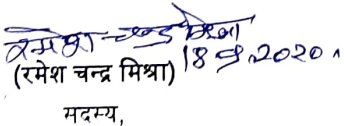 रमेश चन्द्र मिश्रा 18.9.2020
(रमेश चन्द्र मिश्रा)
सदस्य,